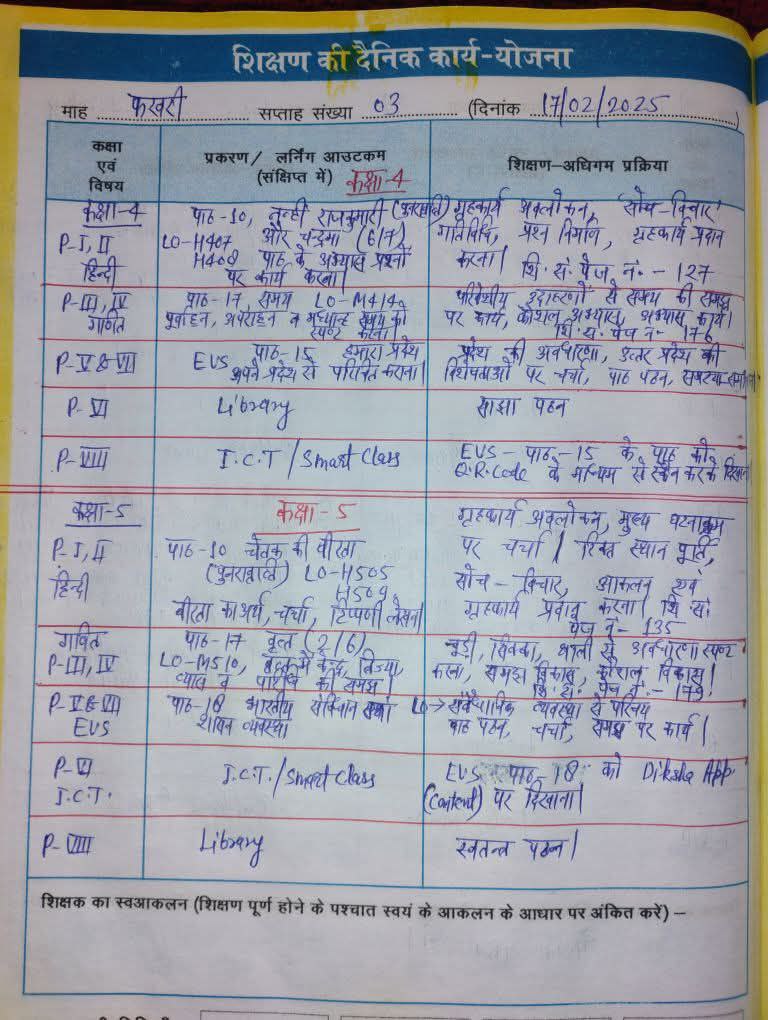 शिक्षण की दैनिक कार्य-योजना
माह फरवरी सप्ताह संख्या 03 (दिनांक 17/02/2025)
कक्षा एवं विषय
प्रकरण/ लर्निंग आउटकम (संक्षिप्त में) कक्षा-4
शिक्षण-अधिगम प्रक्रिया
कक्षा-4
P-I, II
हिन्दी
पाठ-10, नन्ही राजकुमारी (पुनरावृत्ति)
LO-H407 और चन्द्रमा (6/7)
H408 पाठ के अभ्यास प्रश्नों
पर कार्य करना।
गृहकार्य अवलोकन, सोच-विचार
गतिविधि, प्रश्न निर्माण, गृहकार्य प्रदान
करना।
शि. सं. पेज नं. - 127
P-III, IV
गणित
पाठ-17, समय LO-M414
पूर्वाहन, अपराहन व मध्याह्न समय को
स्पष्ट करना।
परिवेशीय उदाहरणों से समय की समझ
पर कार्य, कौशल अभ्यास, अभ्यास कार्य।
शि. सं. पेज नं- 176
P-V & VII
EVS पाठ-15 हमारा प्रदेश
अपने प्रदेश से परिचित कराना।
प्रदेश की अवधारणा, उत्तर प्रदेश की
विशेषताओं पर चर्चा, पाठ पठन,
P-VI
Library
साझा पठन
P-VIII
I.C.T/Smart Class
EVS- पाठ-15 के पाठ को
Q.R.Code के माध्यम से स्कैन करके दिखाना
कक्षा-5
कक्षा-5
P-I, II
हिन्दी
पाठ-10 चेतक की वीरता
(पुनरावृत्ति) LO-H505
H509
वीरता का अर्थ, चर्चा, टिप्पणी लेखन।
गृहकार्य अवलोकन, मुख्य घटनाक्रम
पर चर्चा। रिक्त स्थान पूर्ति,
सोच-विचार, आकलन एवं
गृहकार्य प्रदान करना। शि. सं.
पेज नं- 135
गणित
P-III, IV
पाठ-17 वृत्त (2/6)
LO-M510, केन्द्र, त्रिज्या,
व्यास व परिधि की समझ।
चूड़ी, सिक्का, थाली से अवधारणा स्पष्ट
करना, समझ विकास, कौशल विकास।
शि. सं. पेज नं. - 179
P-V & VII
EVS
पाठ-18 भारतीय संविधान
शासन व्यवस्था
LO→ संवैधानिक व्यवस्था से परिचय
पाठ पठन, चर्चा, समझ पर कार्य।
P-VI
I.C.T.
I.C.T./Smart Class
EVS पाठ-18 को Diksha App
(Content) पर दिखाना।
P-VIII
Library
स्वतन्त्र पठन।
शिक्षक का स्वआकलन (शिक्षण पूर्ण होने के पश्चात स्वयं के आकलन के आधार पर अंकित करें) –